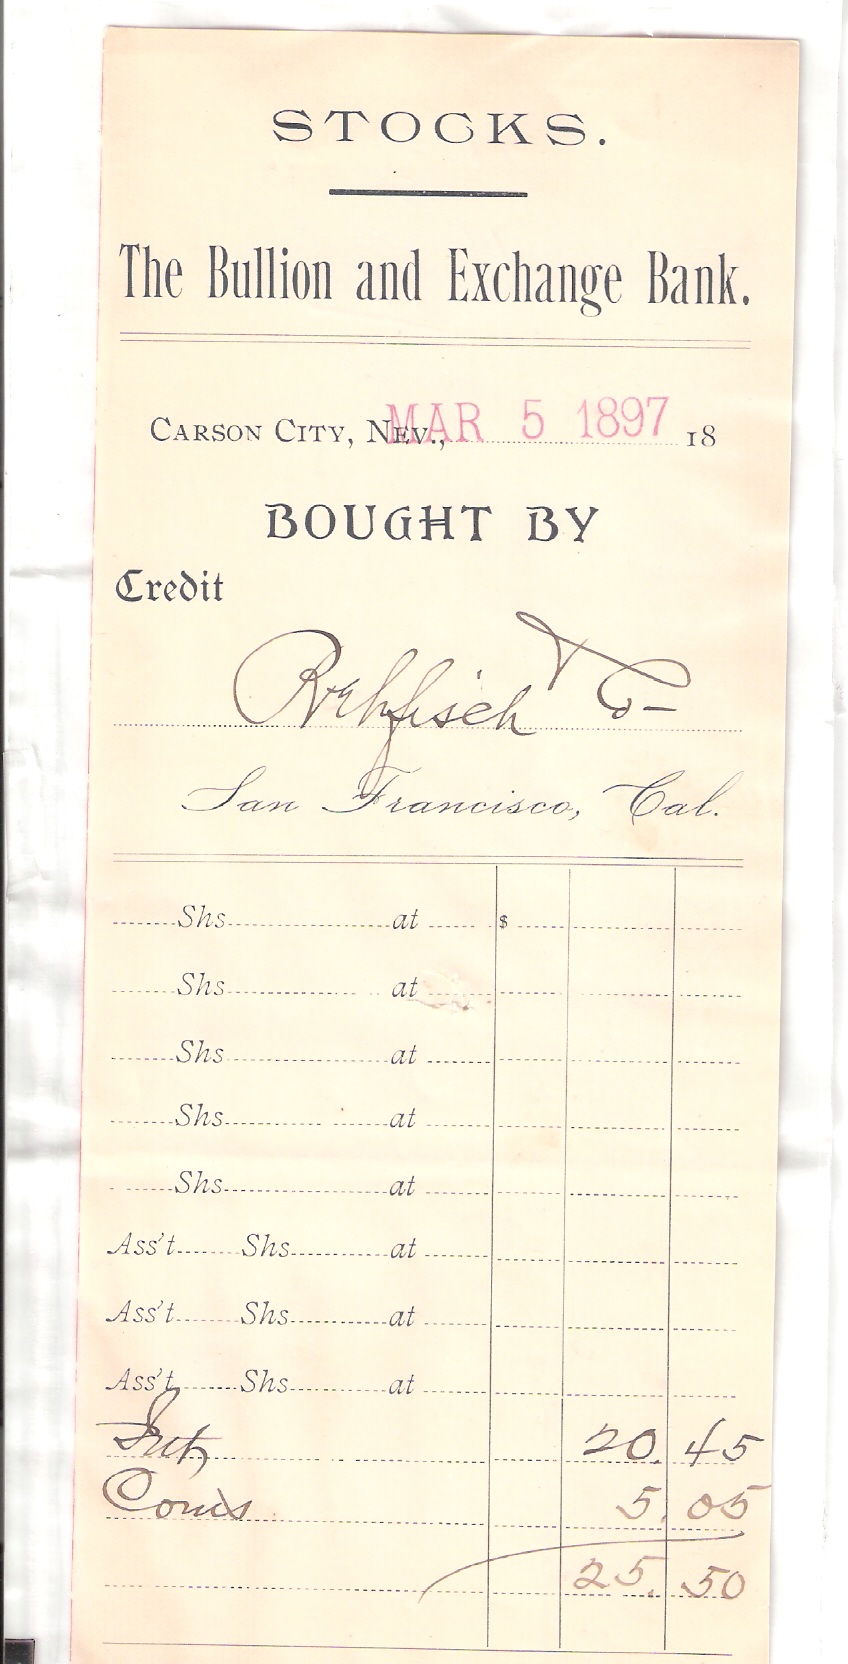 STOCKS.
The Bullion and Exchange Bank.
CARSON CITY, NEV., MAR 5 1897 18
BOUGHT BY
Credit
Rehfisch & Co
San Francisco, Cal.
Shs at $
Shs at
Shs at
Shs at
Shs at
Ass't Shs at
Ass't Shs at
Ass't Shs at
Int 20. 45
Coms 5. 05
25. 50